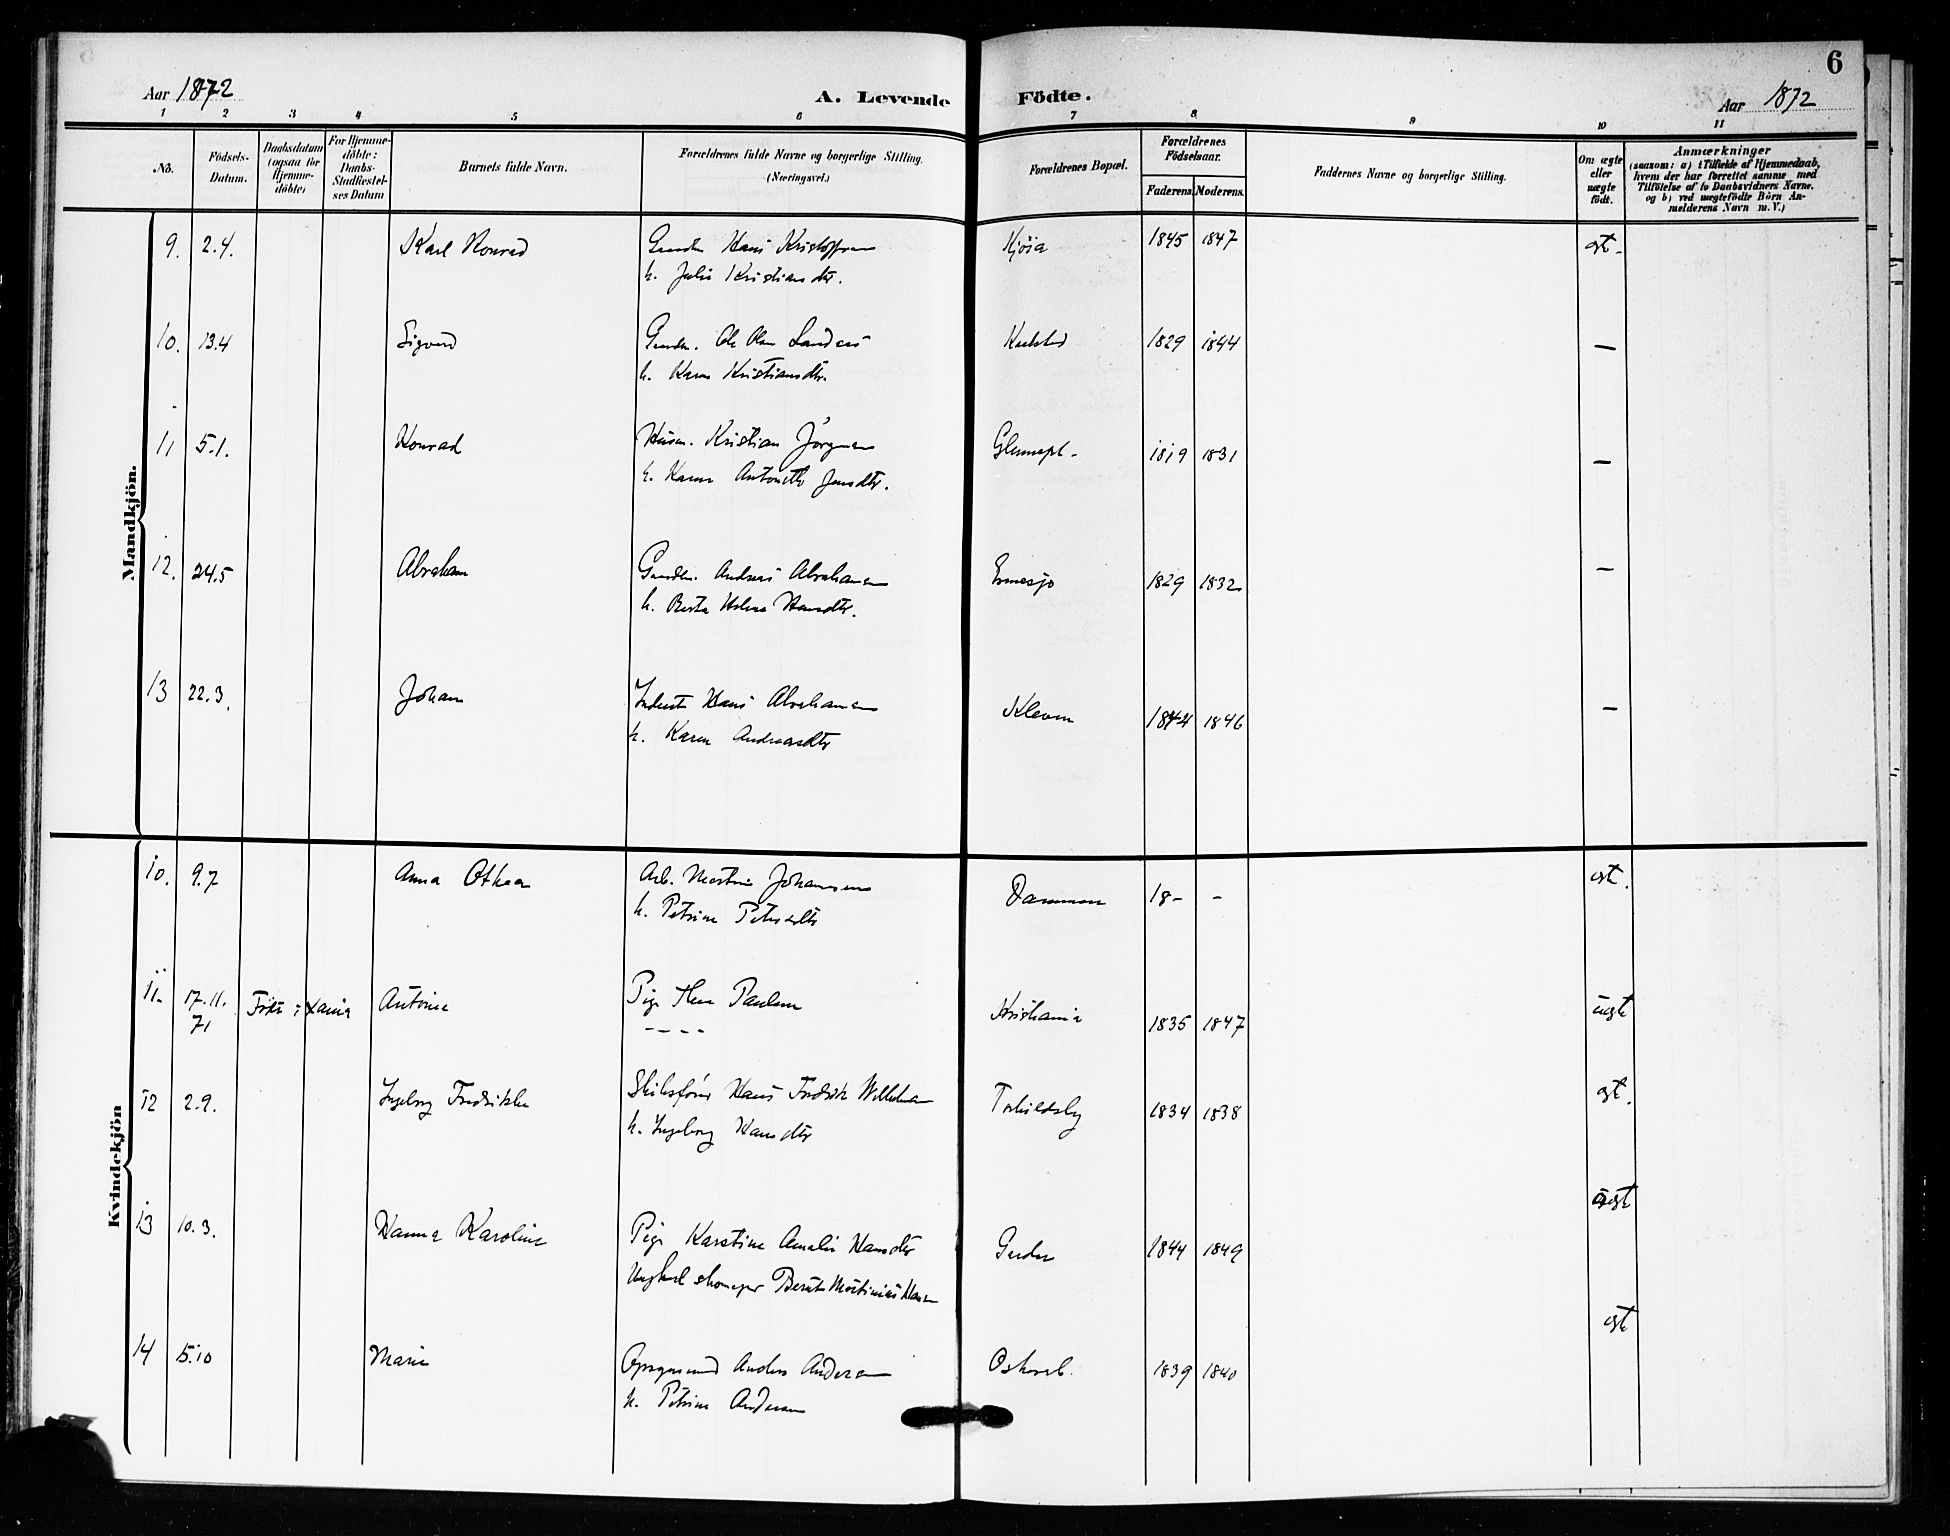 6
Aar 1872
A. Levende Födte.
Aar 1872
1 2 3 4 5 6 7 8 9 10 11
No.
Födsels-
Datum.
Daabsdatum
(ogsaa for
Hjemme-
döbte)
For Hjemme-
döbte:
Daabs-
Stadfæstel-
ses Datum
Barnets fulde Navn.
Forældrenes fulde Navne og borgerlige Stilling.
(Næringsvei.)
Forældrenes Bopæl.
Forældrenes
Födselsaar.
Faderens. Moderens.
Faddernes Navne og borgerlige Stilling.
Om ægte
eller
uægte
födt.
Anmærkninger
(saasom: a) i Tilfælde af Hjemmedaab,
hvem der har forrettet samme med
Tilföielse af to Daabsvidners Navne.
og b) ved uægtefödte Börn An-
melderens Navn m. V.)
Mandkjön.
9. 2.4. Karl Konrad Hans Kristoffersen Kjöia 1845 1847 egt.
h. Julie Kristiansdtr.
10. 13.4 Sigvard Ole Olsen Karlstad 1829 1844 —
h. Karen Kristiansdtr.
11 5.1. Konrad Husm. Kristian Jörgensen 1819 1831 —
h. Karen Antonette Jensdtr.
12. 24.5 Abraham Andreas Abrahamsen 1829 1832 —
h. Berta Helene Hansdtr.
13 22.3. Johan Inderst Hans Abrahamsen Kleven 1844 1846 —
h. Karen Andreasdtr
Kvindekjön
10. 9.7 Anna Othea Arb. Martin Johannesen Dammen 18- - egt.
h. Petrine Petersdtr
11. 17.11. Født i Xania Antonie Pige Paulsen Kristiania 1835 1847 uegt
71 - - - -
12 2.9. Ingeborg Fredrikke Skibsförer Hans Fredrik Wilhelmsen Torkildsby 1834 1838 egt.
h. Ingeborg Hansdtr
13 10.3. Hanna Karoline Pige Karstine Amalie Hansdtr 1844 1849 uegt
Ungkarl Bernt Martinius Hansen
14 5.10 Marie Opsynsmand Anders Andersen 1839 1840 egt
h. Petrine Andersen